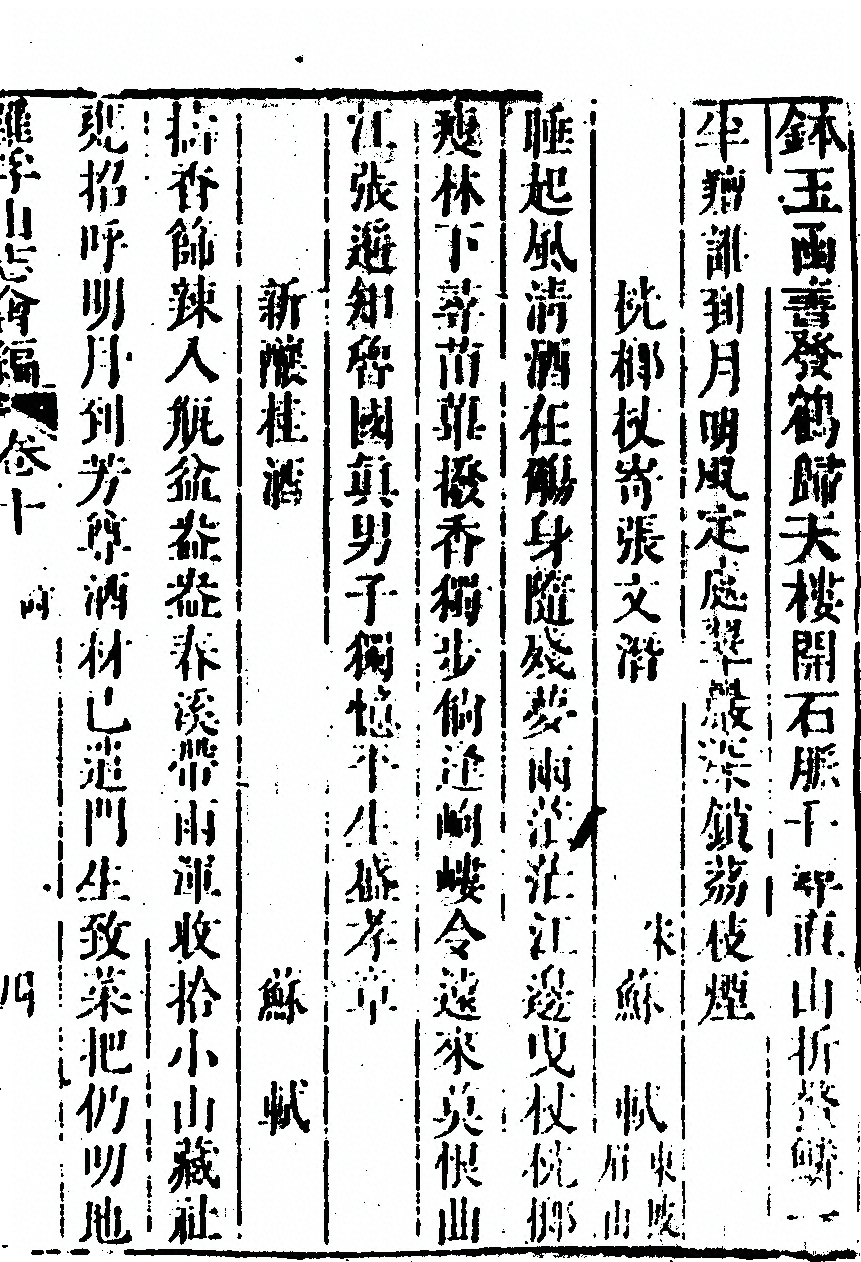 鉢玉函書發鶴歸天樓開石脈千尋直山折鰲鱗一
半類誰到月明風定處翠嚴深鎖荔枝煙
桄榔杖寄張文潛 宋蘇 軾東坡眉山
睡起風清酒在觴身隨殘夢兩茫茫江邊曳杖桄榔
瘦林下尋苗蓽撥香獨步倘逢岣嶁令遠來莫恨曲
江張遥知魯國真男子獨憶平生盛孝章
新釀桂酒 蘇 軾
擣香篩辣入瓶盆盎盎春溪帶雨渾收拾小山藏社
甕招呼明月到芳尊酒材已遣門生致菜把仍叨地
羅浮山志會編 卷十 詩 四